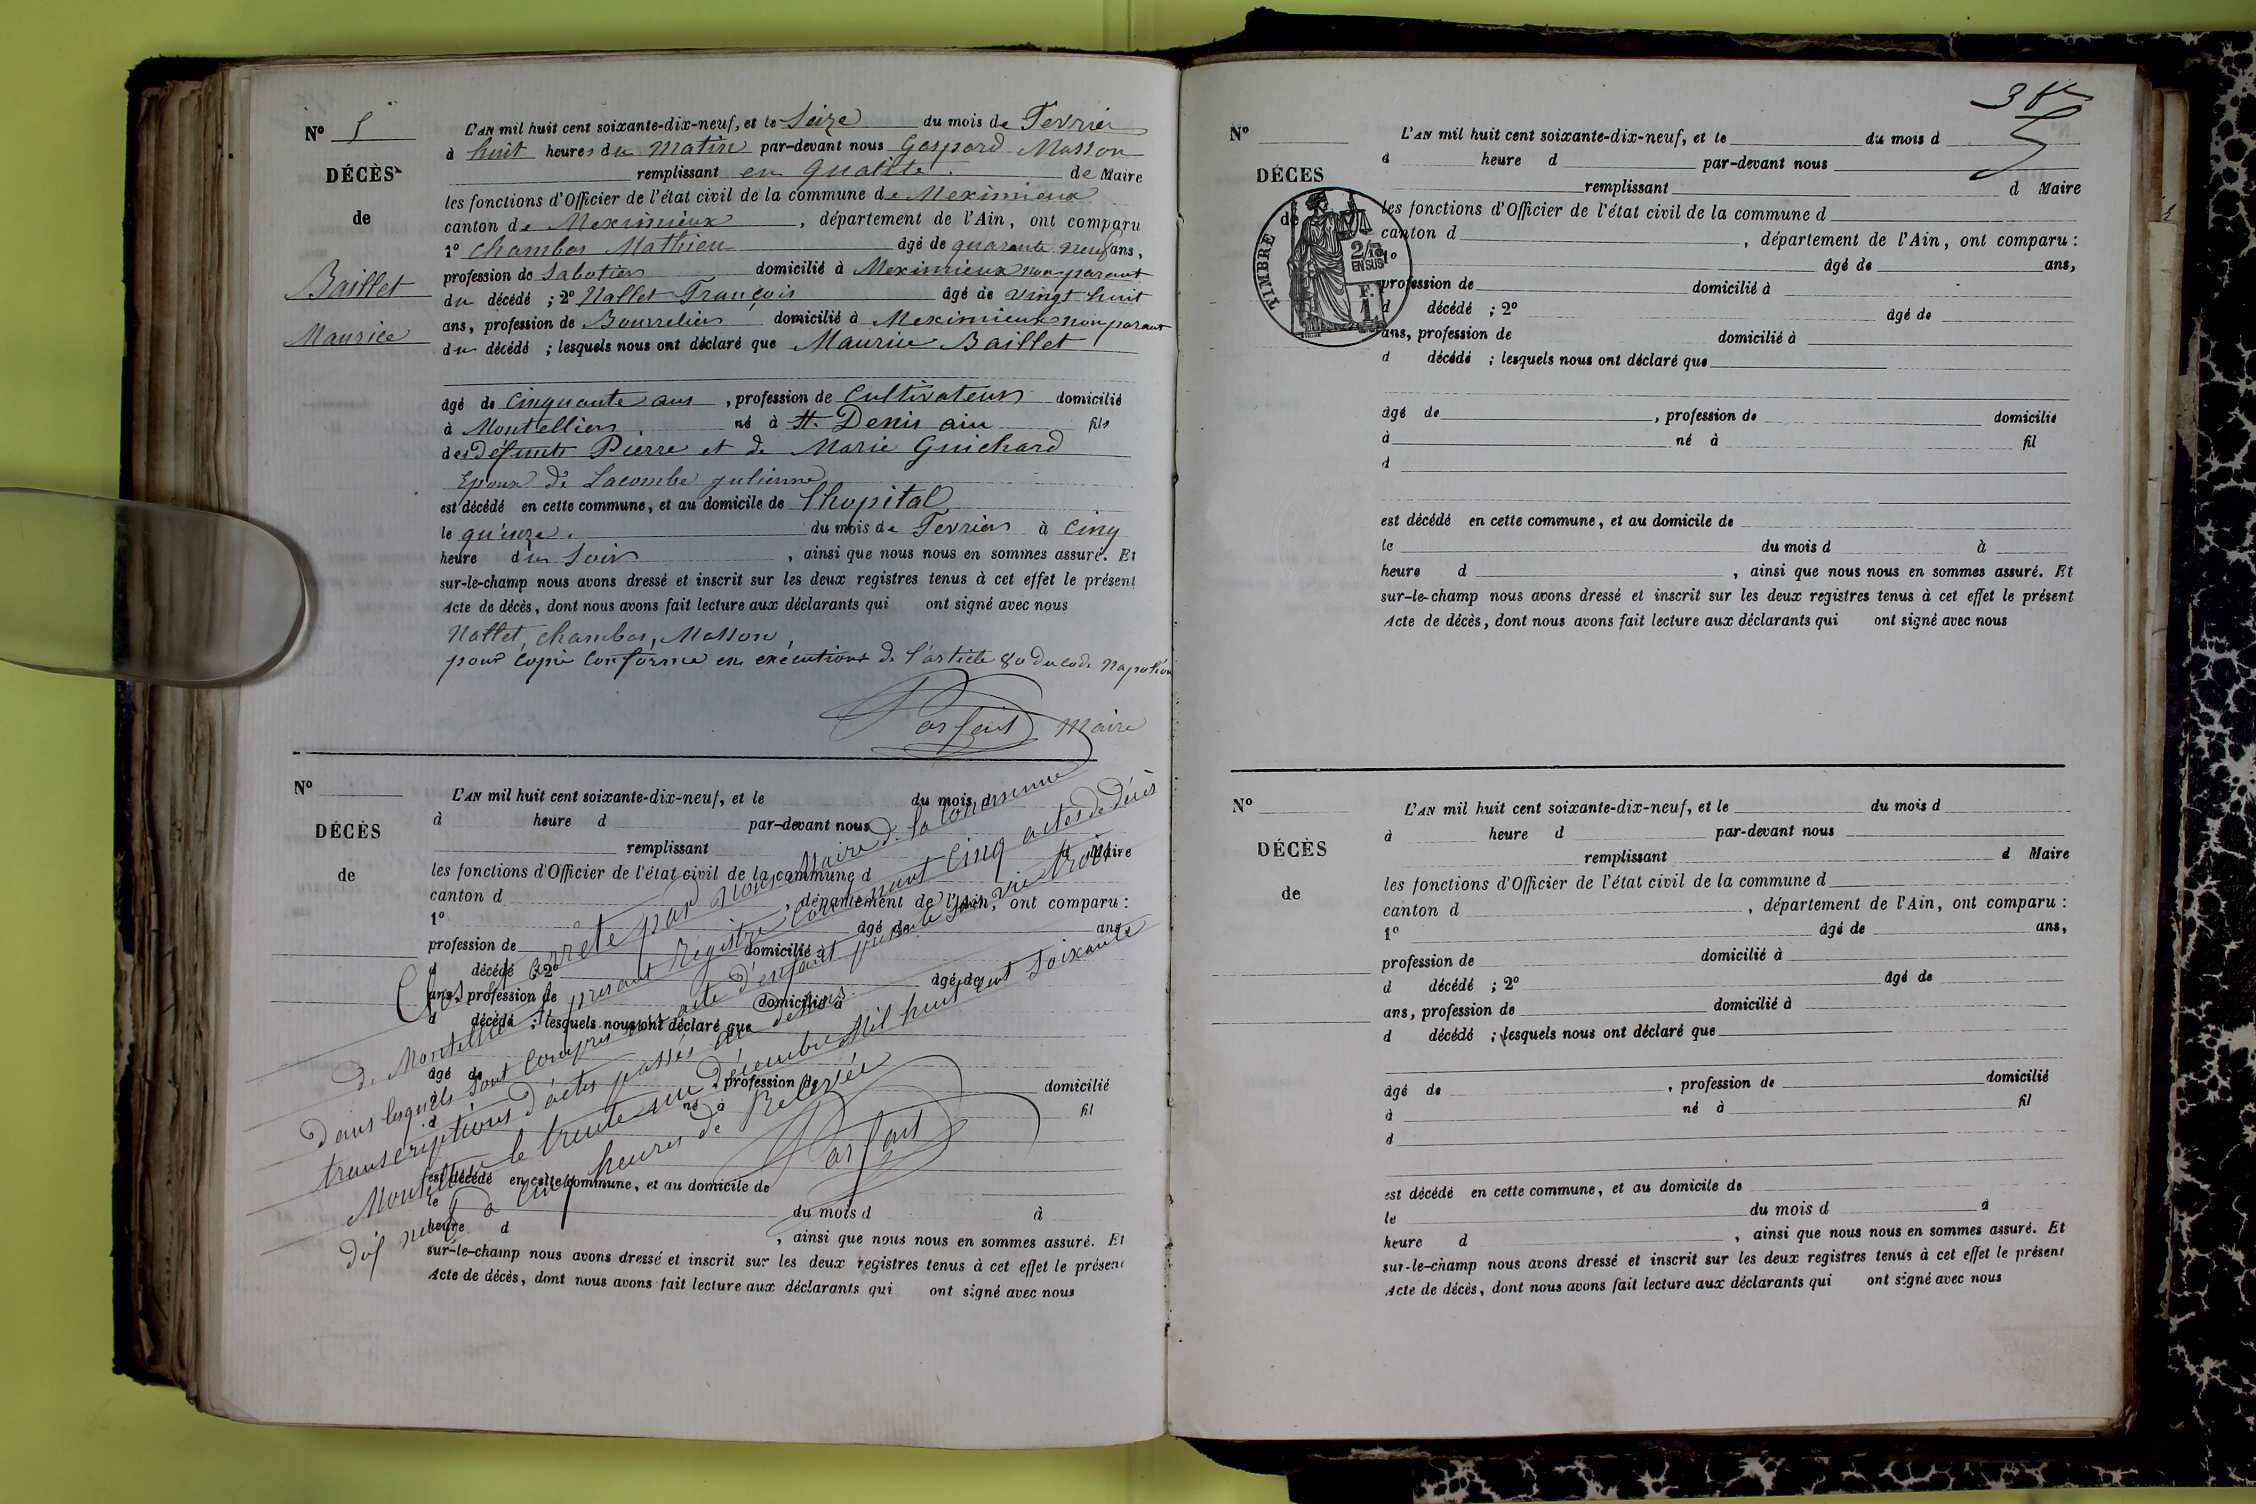 N° 5
DÉCÈS
de
Baillet
Maurice
L'AN mil huit cent soixante-dix-neuf, et le Seize du mois de Fevrier
à huit heures du matin par-devant nous Gaspard Masson
remplissant en qualité de Maire
les fonctions d'Officier de l'état civil de la commune de Meximieux
canton de Meximieux, département de l'Ain, ont comparu
1° Chambos Mathieu âgé de quarante neuf ans,
profession de Sabotier domicilié à Meximieux non parent
du décédé ; 2° Nallet François âgé de vingt huit
ans, profession de Bourrelier domicilié à Meximieux non parent
du décédé ; lesquels nous ont déclaré que Maurice Baillet
âgé de cinquante ans, profession de Cultivateur domicilié
à Montellier né à St. Denis ain fils
des défunts Pierre et de Marie Guichard
Epoux de Lacombe julienne
est décédé en cette commune, et au domicile de l'hopital
le quinze. du mois de Fevrier à cinq
heure du Soir, ainsi que nous nous en sommes assuré. Et
sur-le-champ nous avons dressé et inscrit sur les deux registres tenus à cet effet le présent
Acte de décès, dont nous avons fait lecture aux déclarants qui ont signé avec nous
Nallet, Chambos, Masson,
pour copie conforme en exécution de l'article 80 du code Napoléon
Parfait Maire
N°
DÉCÈS
de
L'AN mil huit cent soixante-dix-neuf, et le du mois d
à heure d par-devant nous
remplissant d Maire
les fonctions d'Officier de l'état civil de la commune d
canton d , département de l'Ain, ont comparu :
1° âgé de ans,
profession de domicilié à
d décédé ; 2° âgé de
ans, profession de domicilié à
d décédé ; lesquels nous ont déclaré que
âgé de , profession de domicilié
à né à fil
d
est décédé en cette commune, et au domicile de
le du mois d à
heure d , ainsi que nous nous en sommes assuré. Et
sur-le-champ nous avons dressé et inscrit sur les deux registres tenus à cet effet le présent
Acte de décès, dont nous avons fait lecture aux déclarants qui ont signé avec nous
Clos et arrêté par nous Maire de la commune
de Montellier le présent registre contenant cinq actes de décès
dans lesquels sont compris un acte d'enfant présenté sans vie trois
transcriptions d'actes passés au dehors
Montellier le trente un décembre Mil huit cent soixante
dix neuf à cinq heures de Relevée
Parfait
3
N°
DÉCÈS
de
TIMBRE
2/10
EN SUS
F.
1.
L'AN mil huit cent soixante-dix-neuf, et le du mois d
à heure d par-devant nous
remplissant d Maire
les fonctions d'Officier de l'état civil de la commune d
canton d , département de l'Ain, ont comparu :
1° âgé de ans,
profession de domicilié à
d décédé ; 2° âgé de
ans, profession de domicilié à
d décédé ; lesquels nous ont déclaré que
âgé de , profession de domicilié
à né à fil
d
est décédé en cette commune, et au domicile de
le du mois d à
heure d , ainsi que nous nous en sommes assuré. Et
sur-le-champ nous avons dressé et inscrit sur les deux registres tenus à cet effet le présent
Acte de décès, dont nous avons fait lecture aux déclarants qui ont signé avec nous
N°
DÉCÈS
de
L'AN mil huit cent soixante-dix-neuf, et le du mois d
à heure d par-devant nous
remplissant d Maire
les fonctions d'Officier de l'état civil de la commune d
canton d , département de l'Ain, ont comparu :
1° âgé de ans,
profession de domicilié à
d décédé ; 2° âgé de
ans, profession de domicilié à
d décédé ; lesquels nous ont déclaré que
âgé de , profession de domicilié
à né à fil
d
est décédé en cette commune, et au domicile de
le du mois d à
heure d , ainsi que nous nous en sommes assuré. Et
sur-le-champ nous avons dressé et inscrit sur les deux registres tenus à cet effet le présent
Acte de décès, dont nous avons fait lecture aux déclarants qui ont signé avec nous